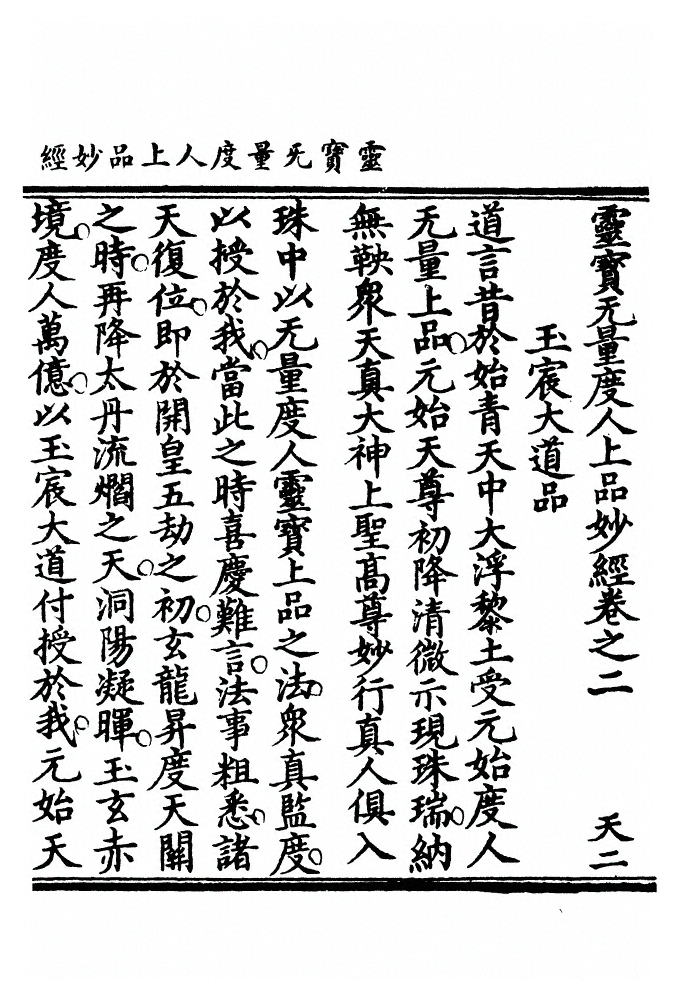 靈寶无量度人上品妙經
靈寶无量度人上品妙經卷之二　天二
玉宸大道品
道言昔於始青天中大浮黎土受元始度人
无量上品。元始天尊初降清微示現珠瑞。納
無鞅衆天真大神上聖高尊妙行真人俱入
珠中以无量度人靈寶上品之法。衆真監度。
以授於我。當此之時喜慶難言。法事粗悉。諸
天復位。即於開皇五劫之初。玄龍昇度天關
之時。再降太丹流爓之天。洞陽凝暉。玉玄赤
境。度人萬億。以玉宸大道付授於我。元始天